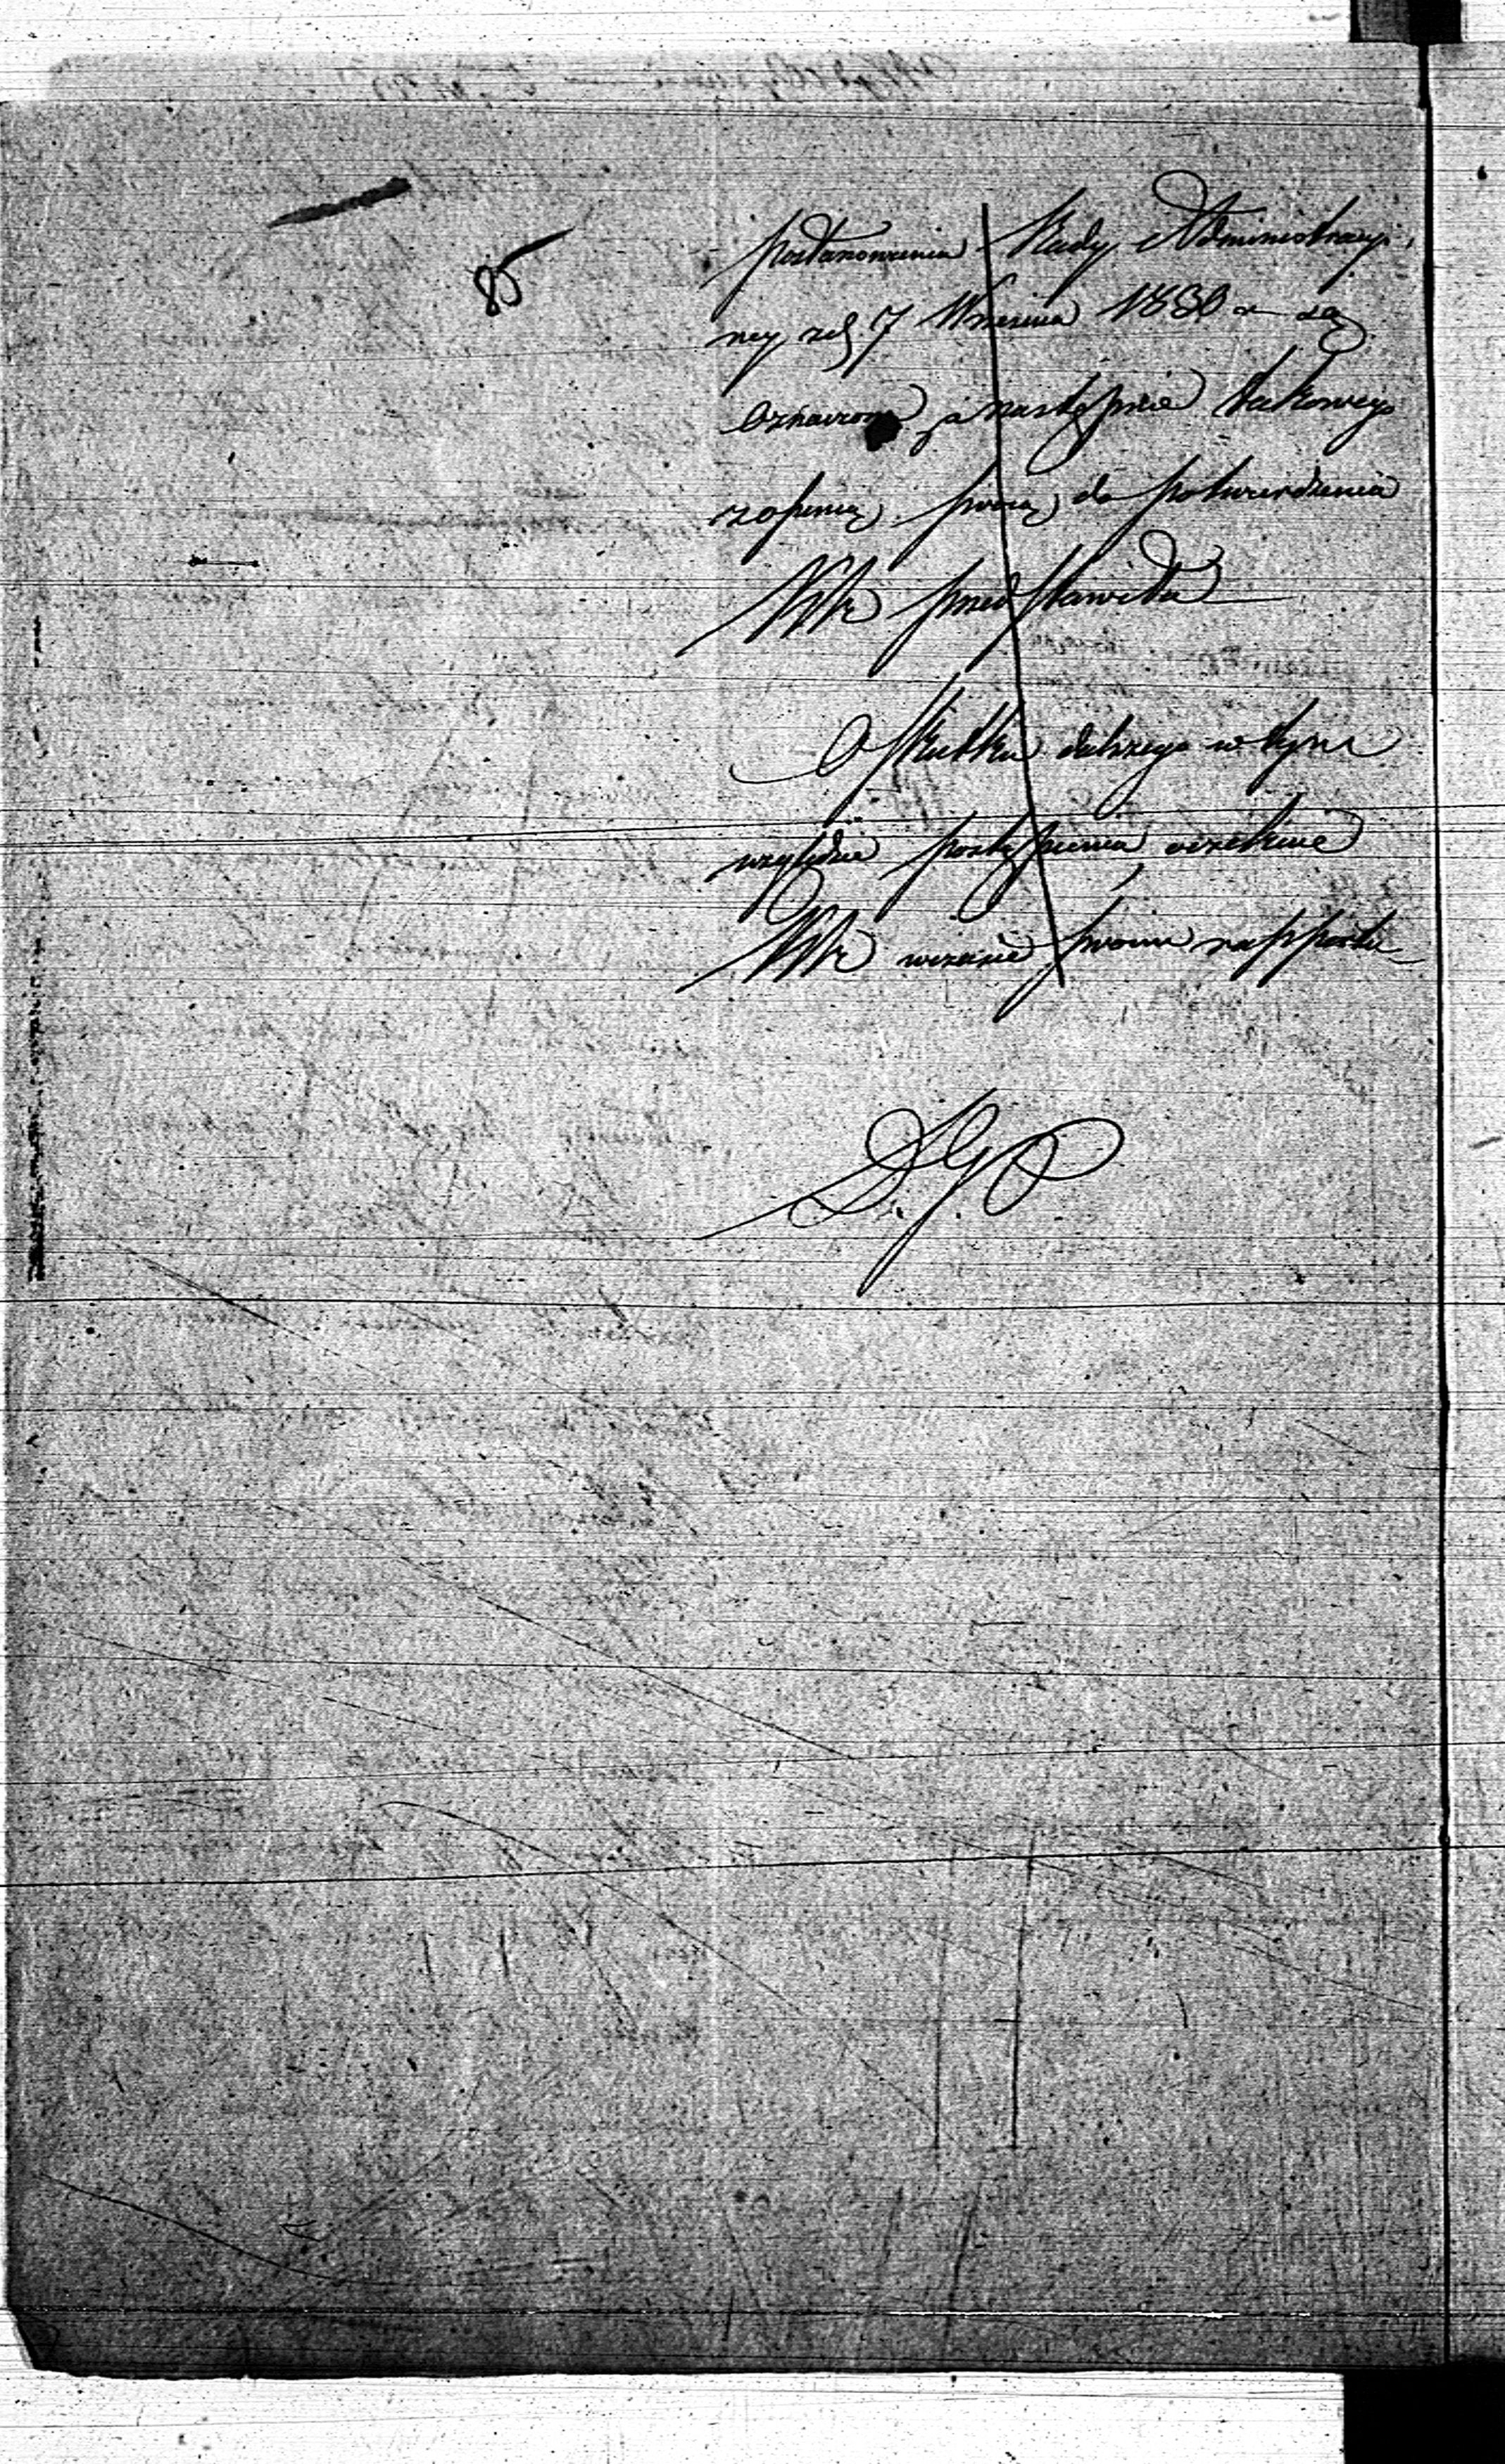 85
postanowienia Rady Administracyi,
ney z d. 7 Września 1830 r.
oznaczone, a następnie takowego
z opinią swoią do potwierdzenia
KRz przedstawiła
O skutku dalszego w tym
względzie postąpienia oczekiwać
KRz będzie swoim rapportu
D. J. P